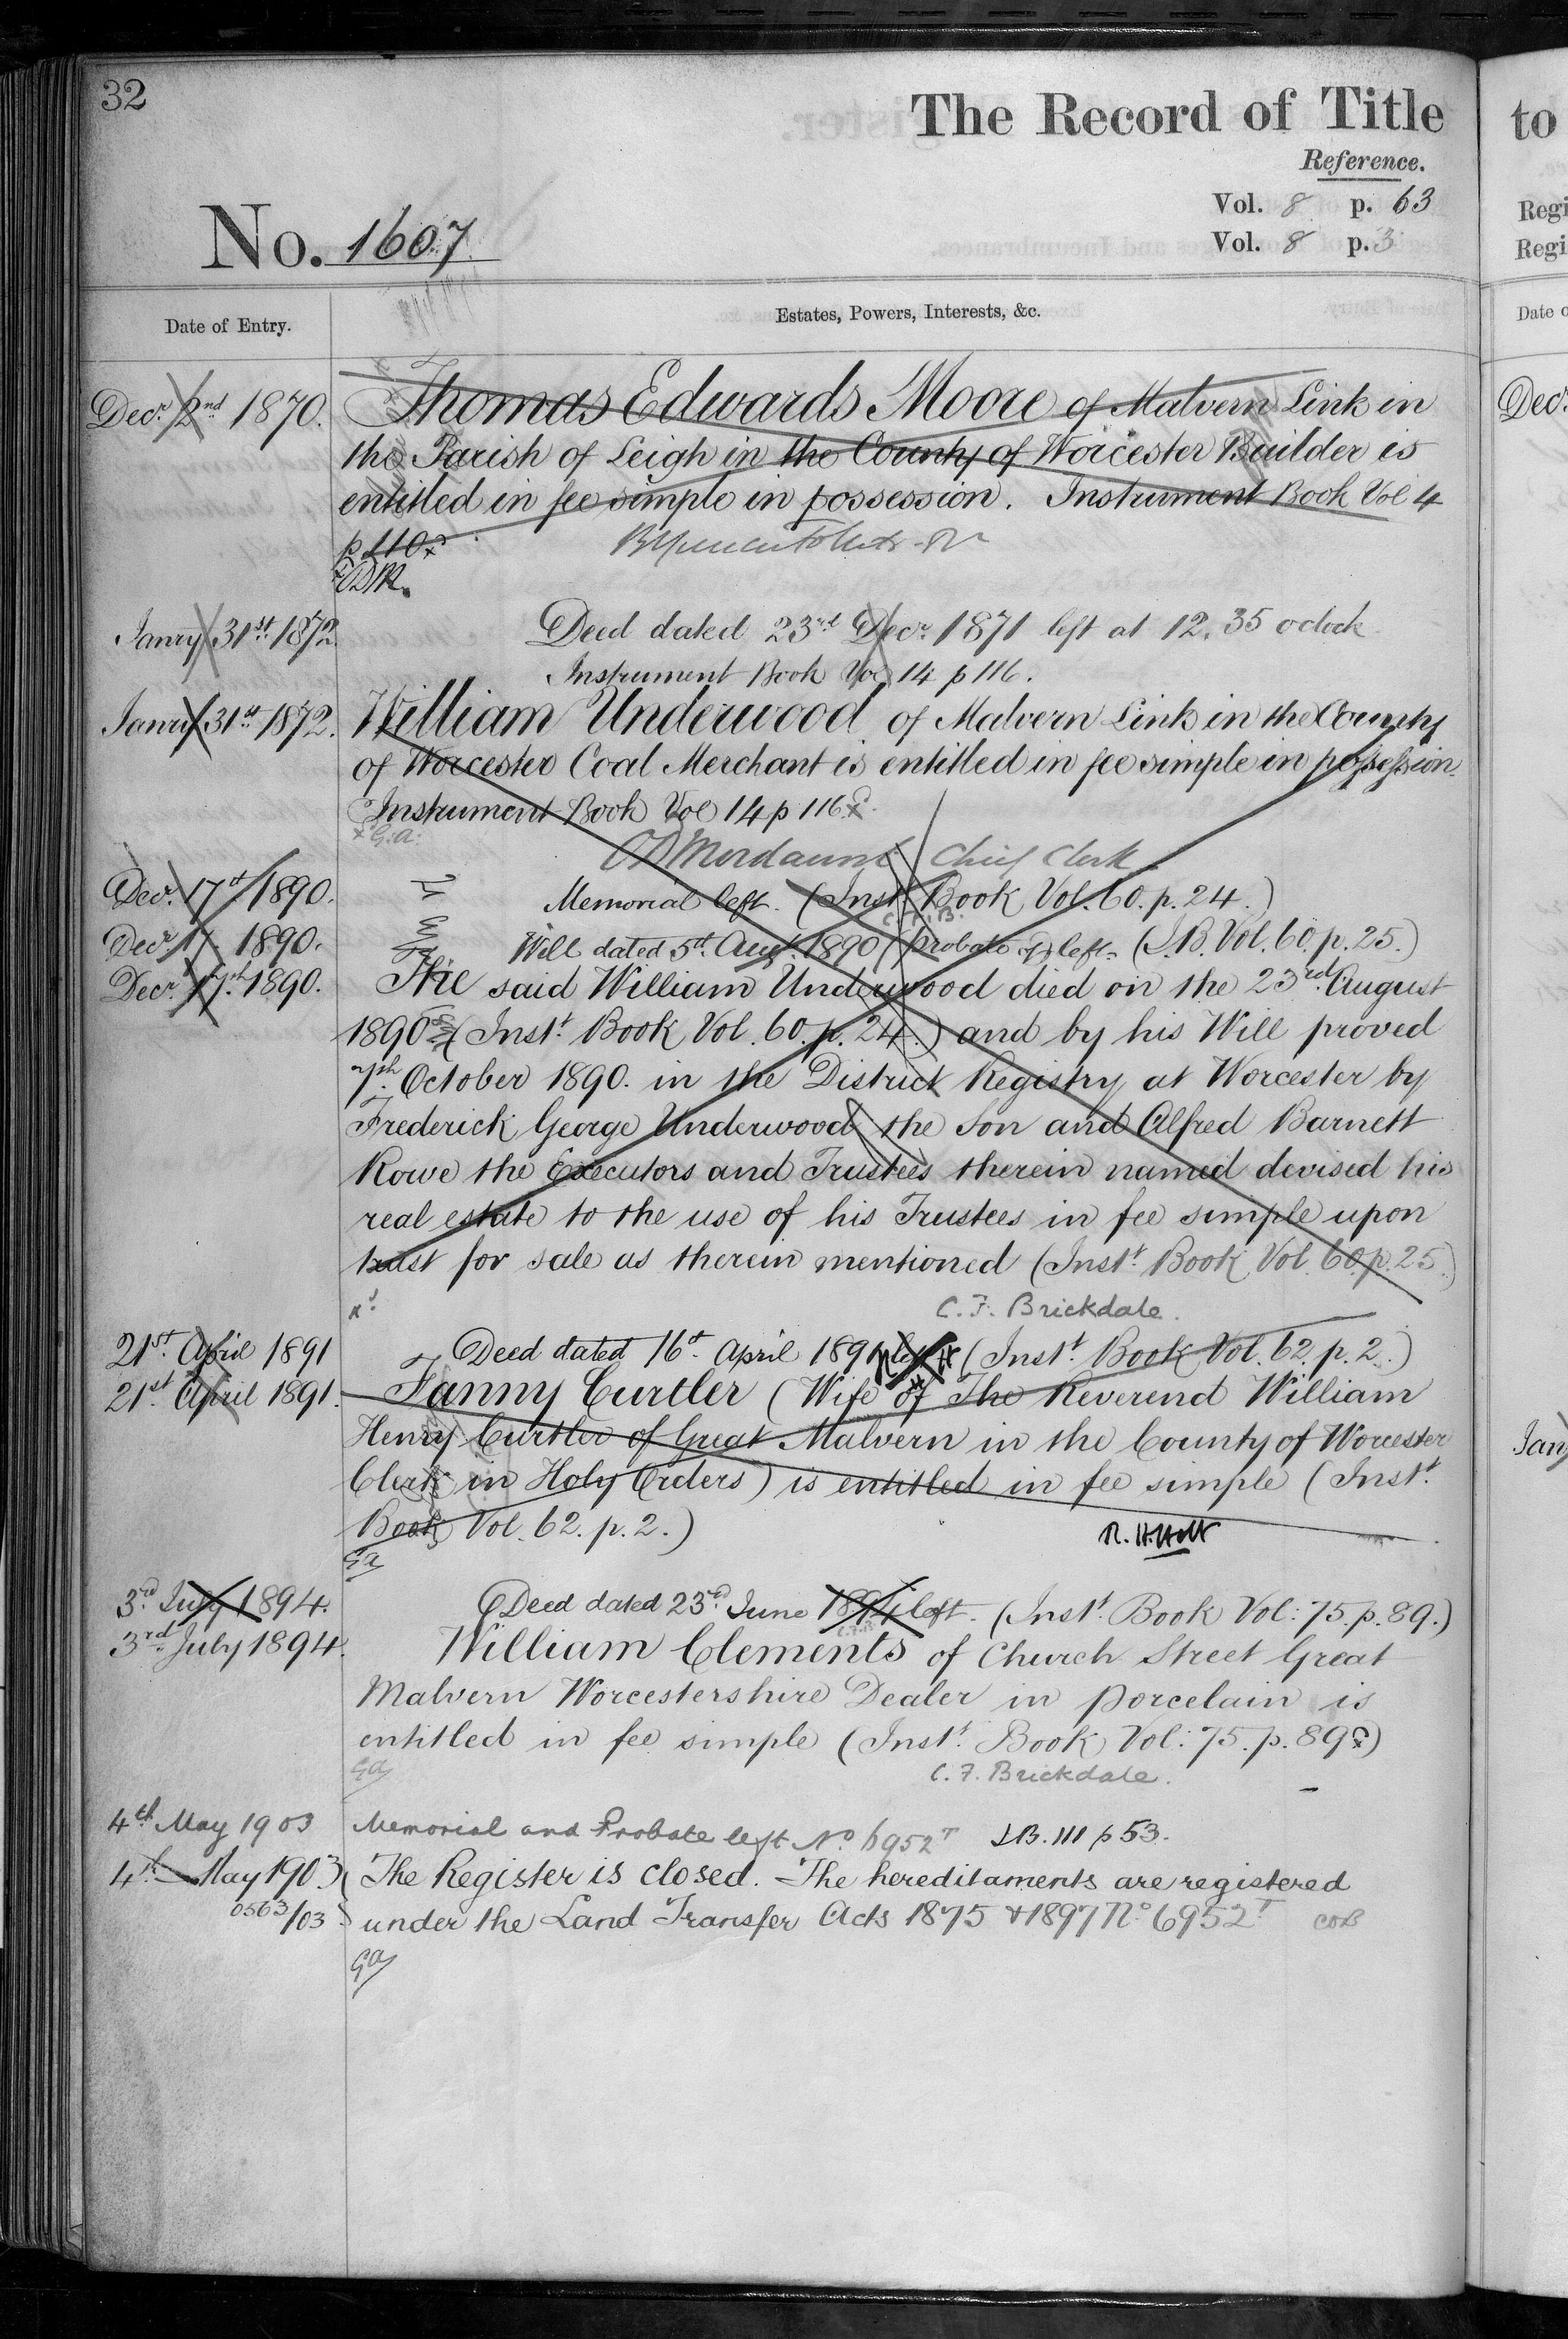 32
The Record of Title
Reference.
Vol. 8 p. 63
No. 1607
Vol. 8 p. 3
Date of Entry.
Estates, Powers, Interests, &c.
Decr. 2nd 1870. Thomas Edwards Moore of Malvern Link in
the Parish of Leigh in the County of Worcester Builder is
entitled in fee simple in possession. Instrument Book Vol 4
p 110
Janry 31st 1872. Deed dated 23rd Decr. 1871 left at 12.35 oclock
Instrument Book Vol 14 p 116.
Janry 31st 1872. William Underwood of Malvern Link in the County
of Worcester Coal Merchant is entitled in fee simple in possession.
Instrument Book Vol 14 p 116
x G.A.
Mordaunt Chief Clerk
Decr. 17th 1890. Memorial left. (Inst. Book Vol. 60. p. 24.)
Decr. 17. 1890. Will dated 5th Augt. 1890 (probate) left. (I.B. Vol. 60. p. 25.)
Decr. 17th 1890. The said William Underwood died on the 23rd August
1890 (Inst. Book Vol. 60. p. 24.) and by his Will proved
7th October 1890. in the District Registry at Worcester by
Frederick George Underwood the Son and Alfred Barnett
Rowe the Executors and Trustees therein named devised his
real estate to the use of his Trustees in fee simple upon
trust for sale as therein mentioned (Inst. Book Vol. 60. p. 25.)
C. F. Brickdale.
21st. April 1891 Deed dated 16th April 1891 left (Inst. Book Vol. 62. p. 2.)
21st. April 1891. Fanny Curtler (Wife of The Reverend William
Henry Curtler of Great Malvern in the County of Worcester
Clerk in Holy Orders) is entitled in fee simple (Inst.
Book Vol. 62. p. 2.)
R. H. Holt
GA
3rd July 1894. Deed dated 23rd June 1894 left. (Inst. Book Vol: 75. p. 89.)
3rd July 1894. William Clements of Church Street Great
Malvern Worcestershire Dealer in porcelain is
entitled in fee simple (Inst. Book Vol: 75. p. 89)
GA
C. F. Brickdale.
4th May 1903 Memorial and Probate left No. 6952T I.B. 111 p 53.
4th May 1903 The Register is closed. The hereditaments are registered
0563/03 under the Land Transfer Acts 1875 & 1897 No. 6952T
GA
to
Regi
Regi
Date o
Decr.
Jany